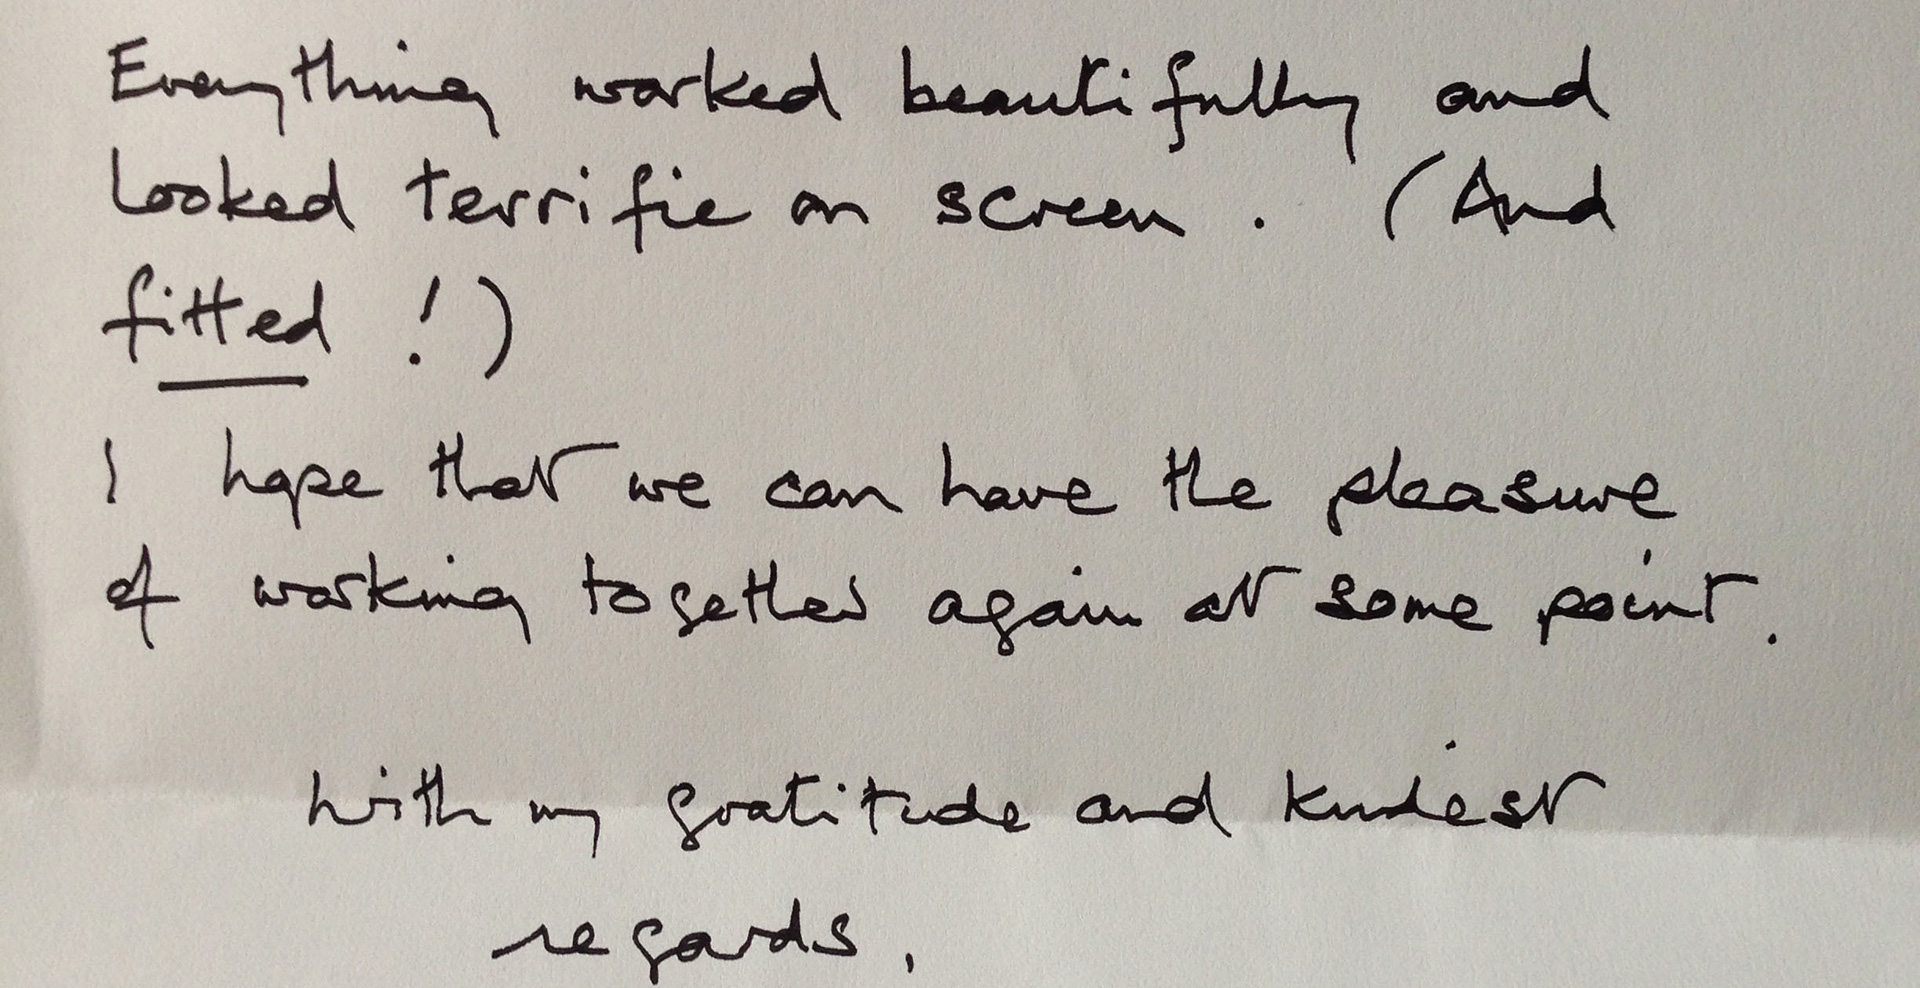 Everything worked beautifully and
looked terrific on screen. (And
fitted!)
I hope that we can have the pleasure
of working together again at some point.
With my gratitude and kindest
regards,